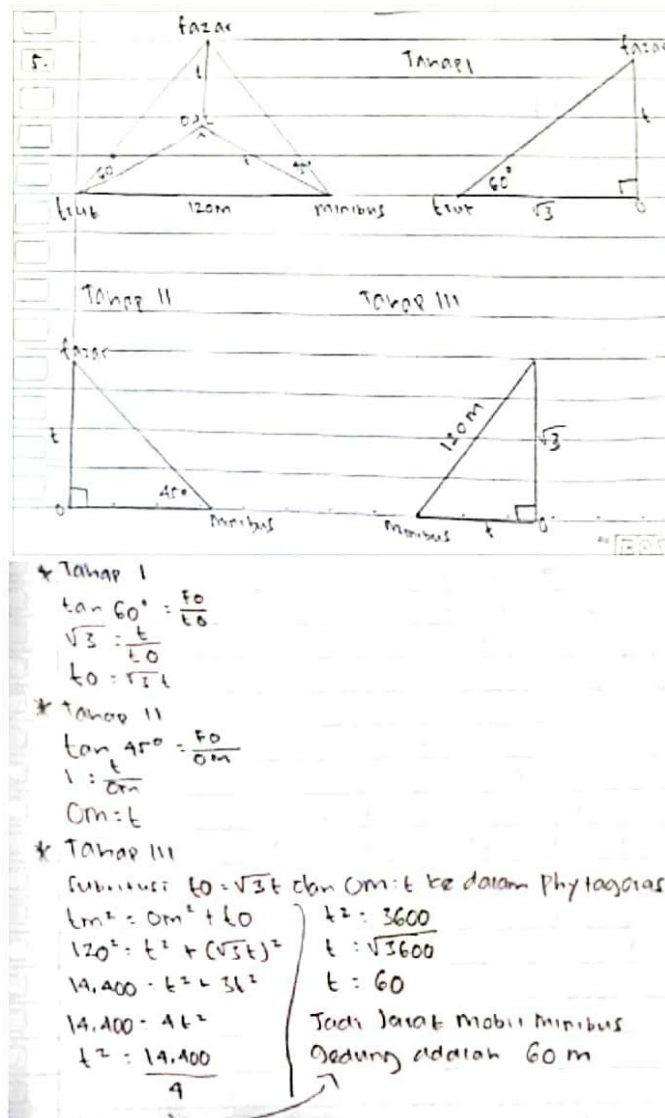 5.
fazar
t
60
45°
truk
120m
minibus
Tahap I
fazar
t
60°
truk
√3
O
Tahap II
fazar
t
O
45°
minibus
Tahap III
120m
√3
minibus
t
O
* Tahap I
tan 60° = FO/tO
√3 = t/tO
tO = √3 t
* Tahap II
tan 45° = FO/Om
1 = t/Om
Om = t
* Tahap III
Subsitusi tO = √3t dan Om = t ke dalam Phytagoras
tm² = Om² + tO
120² = t² + (√3t)²
14.400 = t² + 3t²
14.400 = 4t²
t² = 14.400/4
t² = 3600
t = √3600
t = 60
Jadi Jarak mobil minibus
Gedung adalah 60 m